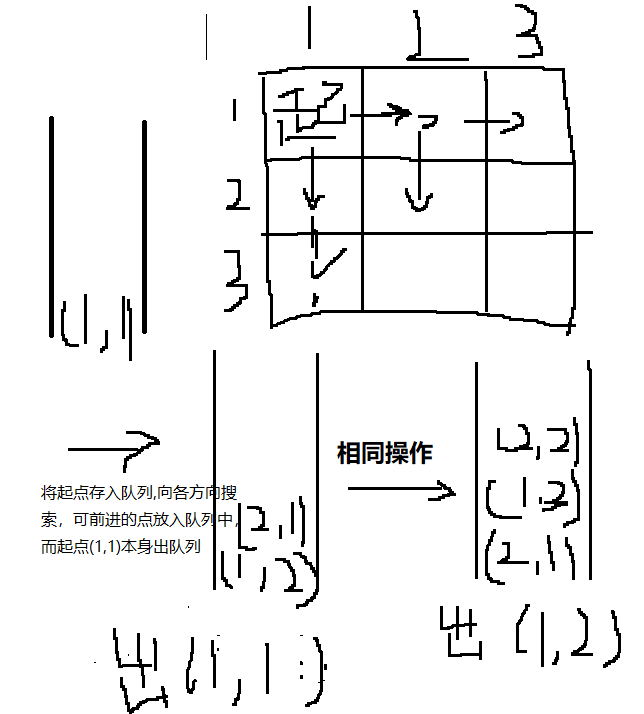 1 2 3
1
起
2
3
(1,1)
相同操作
将起点存入队列,向各方向搜
索，可前进的点放入队列中，
而起点(1,1)本身出队列
(2,1)
(1,2)
(2,2)
(1,2)
(2,1)
出(1,1)
出(1,2)